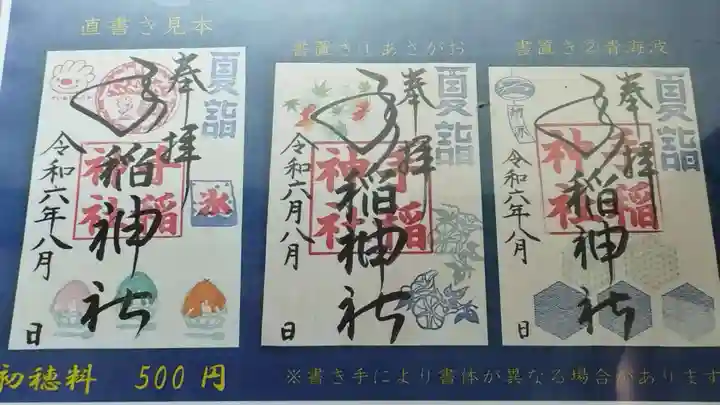 直書き見本
夏詣
奉拝
手稲神社
手稲
神社
氷
令和六年八月
日
書置き①あさがお
夏詣
奉拝
手稲神社
手稲
神社
令和六年八月
日
書置き②青海波
夏詣
奉拝
手稲神社
手稲
神社
令和六年八月
日
初穂料 500円
※書き手により書体が異なる場合があります